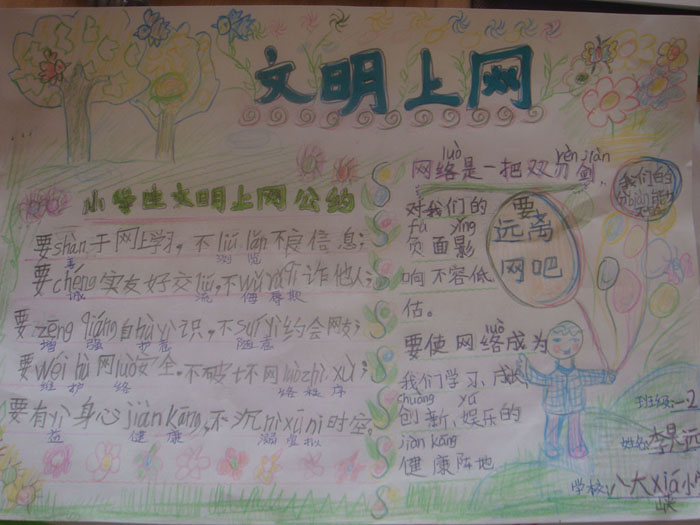 文明上网
小学生文明上网公约
要shàn于网上学习,不liú lǎn不良信息;
善 浏览
要chéng实友好交liú,不wǔ rǔ qī诈他人;
诚 流 侮辱欺
要zēng qiáng自hù yì识,不suí yì约会网友;
增强 护意 随意
要wéi hù网luò安全,不破坏网luò zhì xù;
维护 络 络秩序
要有yì身心jiàn kāng,不沉nì xū nǐ时空。
益 健康 溺虚拟
luò rèn jiàn
网络是一把双刃剑,
对我们的
fù yǐng
负面影
响不容低
估。
luò
要使网络成为
我们学习、成长、
chuàng yú
创新、娱乐的
jiàn kāng
健康阵地
要
远离
网吧
我们的
班级:一2
姓名:李
学校:八大xiá小
峡